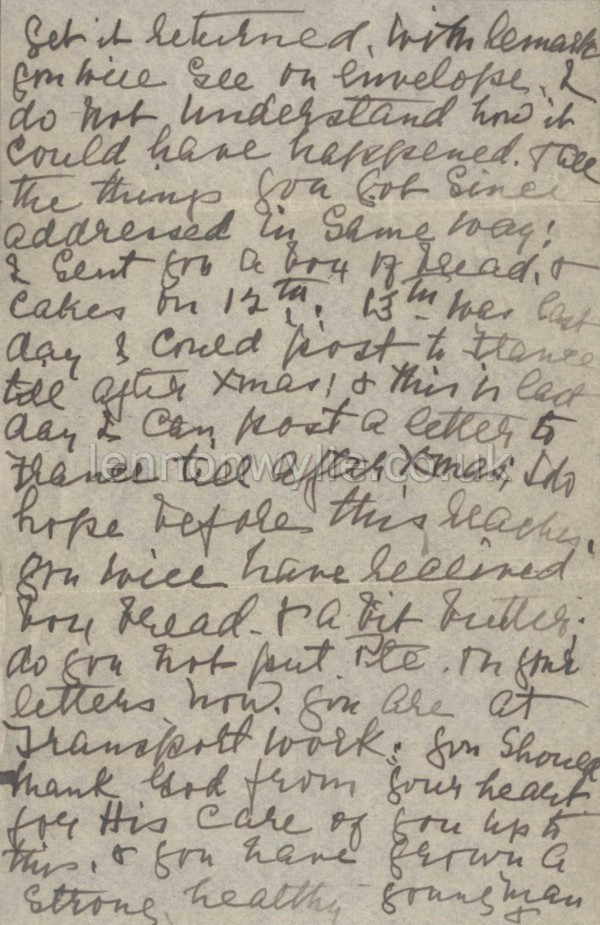 get it returned, with remark
you will see on envelope, I
do not understand how it
could have happened. & all
the things you got since
addressed in same way!
I sent you a box of bread, &
cakes on 12th, 13th was last
day I could post to France
till after Xmas! & this is last
day I can post a letter to
France till after Xmas, I do
lennonwylie.co.uk
hope before this reaches
you will have received
box bread & a bit butter,
do you not put Pte. on your
letters now. you are at
Transport work, you should
thank God from your heart
for His care of you up to
this, & you have grown a
strong healthy young man